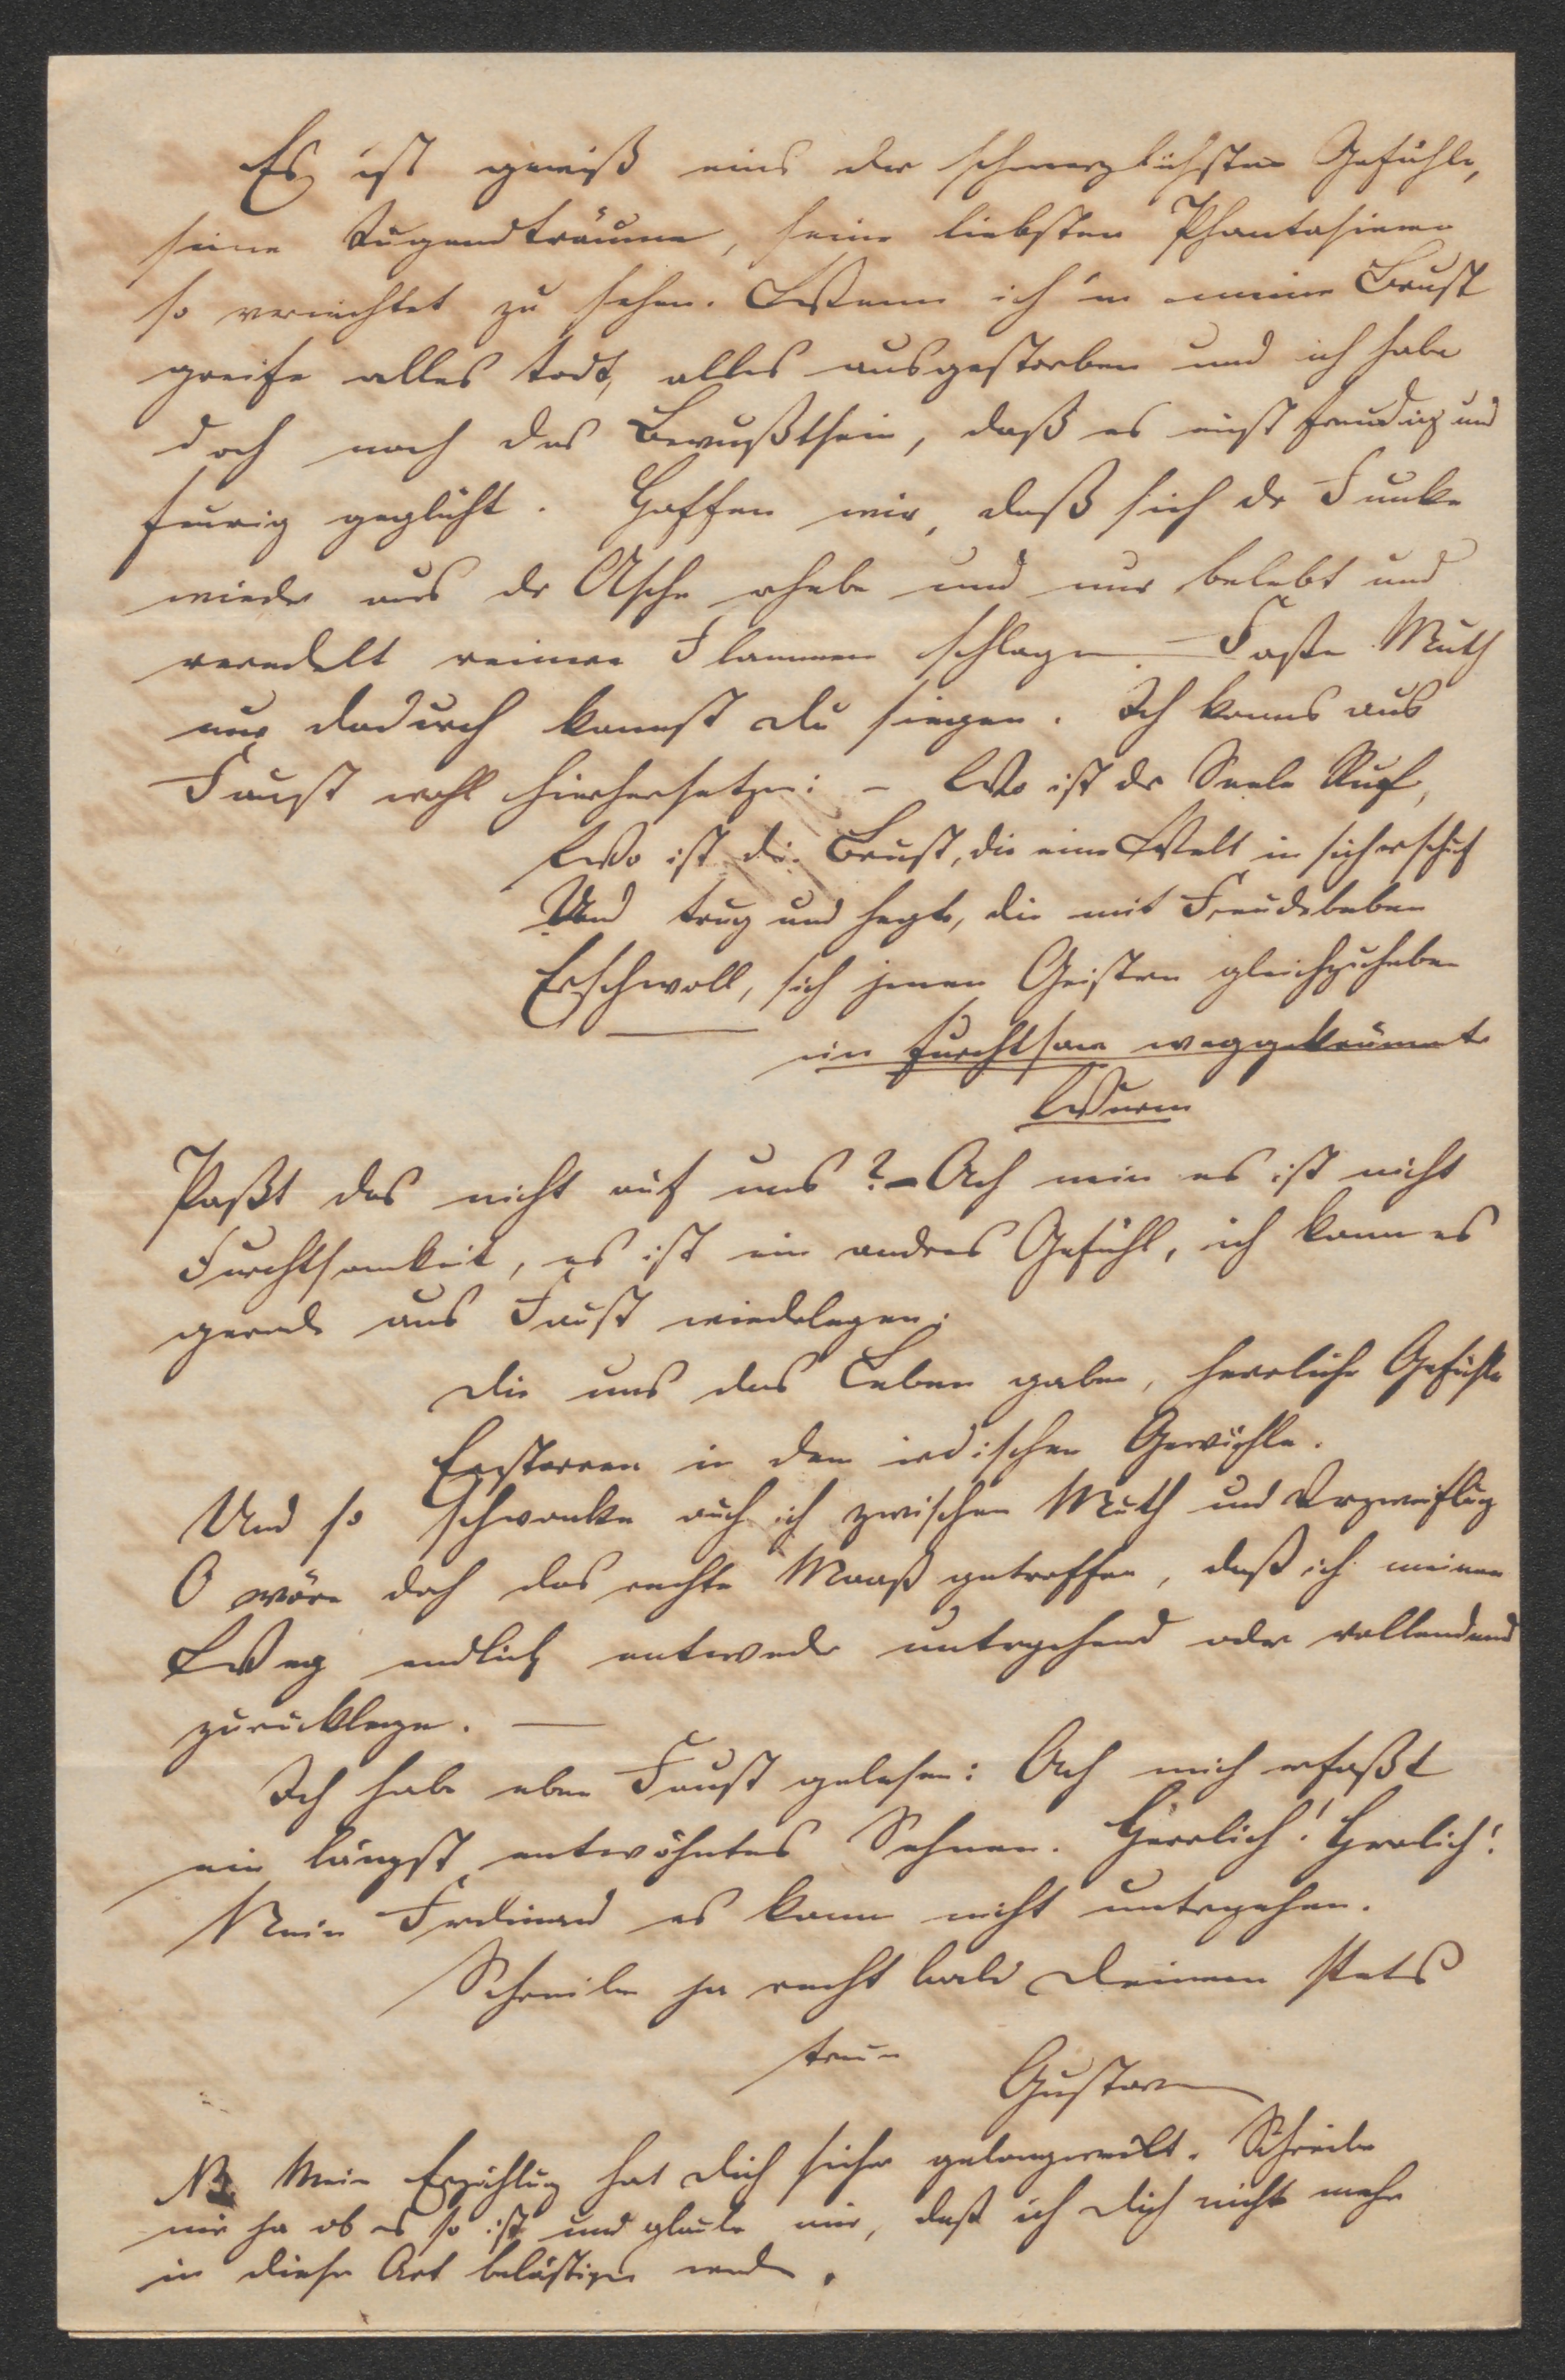 Es ist gewiß eins der schmerzlichsten Gefühle,
seine Jugendträume, seine liebsten Phantasieen
so vernichtet zu sehen. Wenn ich in meine Brust
greife alles todt, alles ausgestorben und ich habe
doch noch das Bewußtsein, daß es einst freudig und
feurig geglüht. Hoffen wir, daß sich der Funke
wieder aus der Asche erhebe und neu belebt und
veredelt reinere Flammen schlage. — Fasse Muth
nur dadurch kannst Du siegen. Ich kanns aus
Faust wohl hierhersetzen: – Wo ist der Seele Ruf,
Wo ist die Brust, die eine Welt in sich erschuf
Und trug und hegte, die mit Freudebeben
Erschwoll, sich jenen Geistern gleichzuheben
— ein furchtsam weggekrümmter
Wurm
Paßt das nicht auf uns? – Ach nein es ist nicht
Furchtsamkeit, es ist ein andres Gefühl, ich kann es
gerade aus Faust wiederlegen:
Die uns das Leben gaben, herrliche Gefühle
Erstarren in dem irdischen Gewühle.
Und so schwanke auch ich zwischen Muth und Verzweiflung
O wäre doch das rechte Maaß getroffen, daß ich meinen
Weg endlich entweder untergehend oder vollendend
zurücklege. —
Ich habe eben Faust gelesen: Ach mich erfaßt
ein längst entwöhntes Sehnen. Herrlich! Herrlich!
Nein Ferdinand es kann nicht untergehen.
Schreibe ja recht bald Deinem stets
treuen
Gustav
NB Meine Erzählung hat Dich sicher gelangweilt. Schreibe
mir ja ob es so ist und glaube mir, daß ich Dich nicht mehr
in dieser Art belästigen werde.